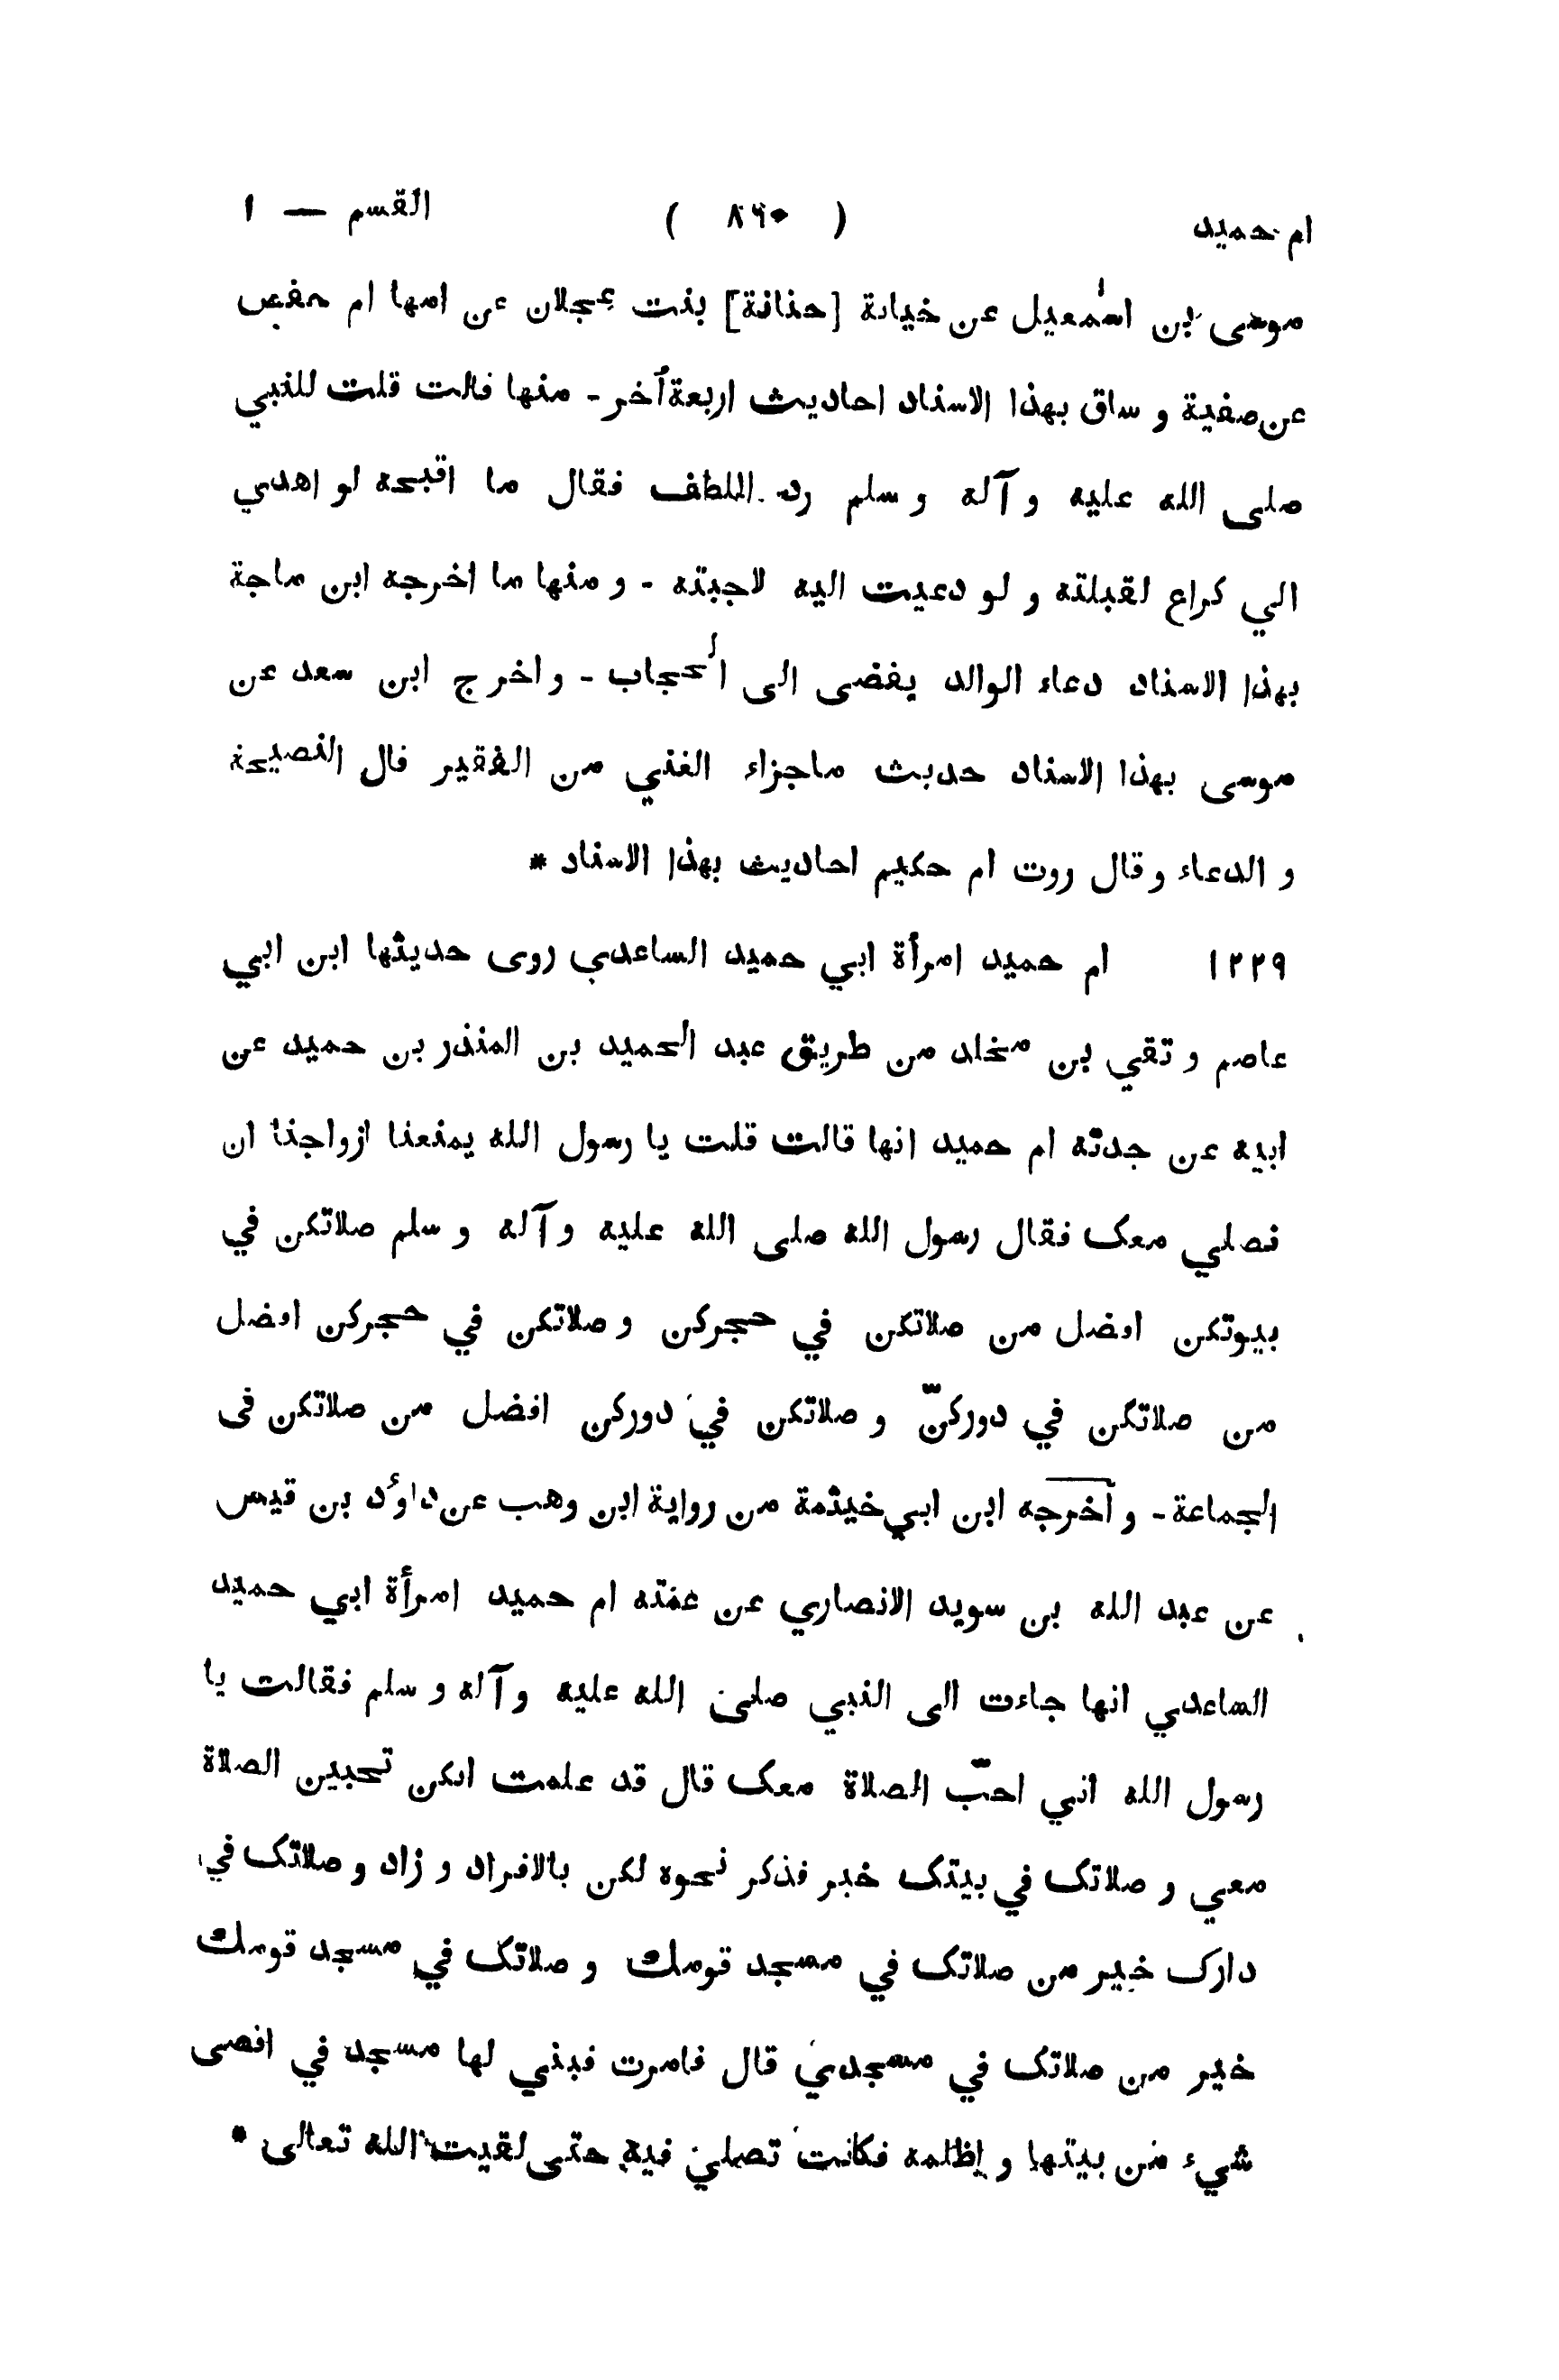 ام حميد ( ٨٦٠ ) القسم — ١
موسى بن اسٰمعيل عن خيانة [حنانة] بنت عجلان عن امها ام حفص
عن صفية و ساق بهذا الاسناد احاديث اربعة أخر - منها قالت قلت للنبي
صلى الله عليه و آله و سلم رد اللطف فقال ما اقبحه لو اهدي
الي كراع لقبلته و لو دعيت اليه لاجبته - و منها ما اخرجه ابن ماجة
بهذا الاسناد دعاء الوالد يفضى الى الحجاب - و اخرج ابن سعد عن
موسى بهذا الاسناد حديث ماجزاء الغني من الفقير قال النصيحة
و الدعاء و قال روت ام حكيم احاديث بهذا الاسناد *
١٢٢٩ ام حميد امرأة ابي حميد الساعدي روى حديثها ابن ابي
عاصم و تقي بن مخلد من طريق عبد الحميد بن المنذر بن حميد عن
ابيه عن جدته ام حميد انها قالت قلت يا رسول الله يمنعنا ازواجنا ان
نصلي معك فقال رسول الله صلى الله عليه و آله و سلم صلاتكن في
بيوتكن افضل من صلاتكن في حجركن و صلاتكن في حجركن افضل
من صلاتكن في دوركنّ و صلاتكن في دوركن افضل من صلاتكن فى
الجماعة - و أخرجه ابن ابي خيثمة من رواية ابن وهب عن داوٗد بن قيس
عن عبد الله بن سويد الانصاري عن عمته ام حميد امرأة ابي حميد
الساعدي انها جاءت الى النبي صلى الله عليه و آله و سلم فقالت يا
رسول الله اني احبّ الصلاة معك قال قد علمت انكن تحبين الصلاة
معي و صلاتك في بيتك خير فذكر نحوه لكن بالافراد و زاد و صلاتك في
دارك خير من صلاتك في مسجد قومك و صلاتك في مسجد قومك
خير من صلاتك في مسجدي قال فامرت فبني لها مسجد في اقصى
شيء من بيتها و اظلمه فكانت تصلي فيه حتى لقيت الله تعالى *